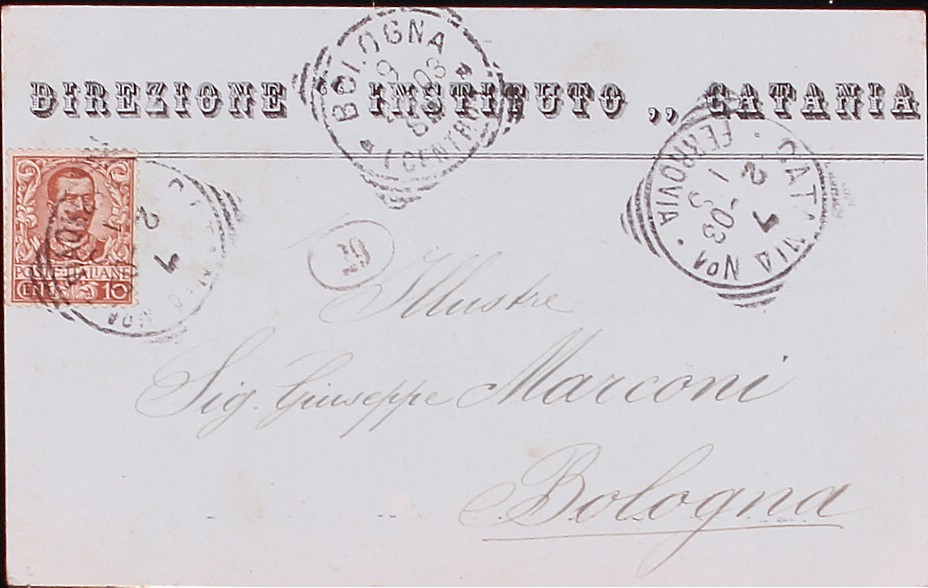 DIREZIONE INSTITUTO ,, CATANIA
BOLOGNA
03
CENTR
CATANIA Nº1
FERROVIA
2 1
1 - 03
POSTE ITALIANE
CENT. 10
Illustre
Sig. Giuseppe Marconi
Bologna